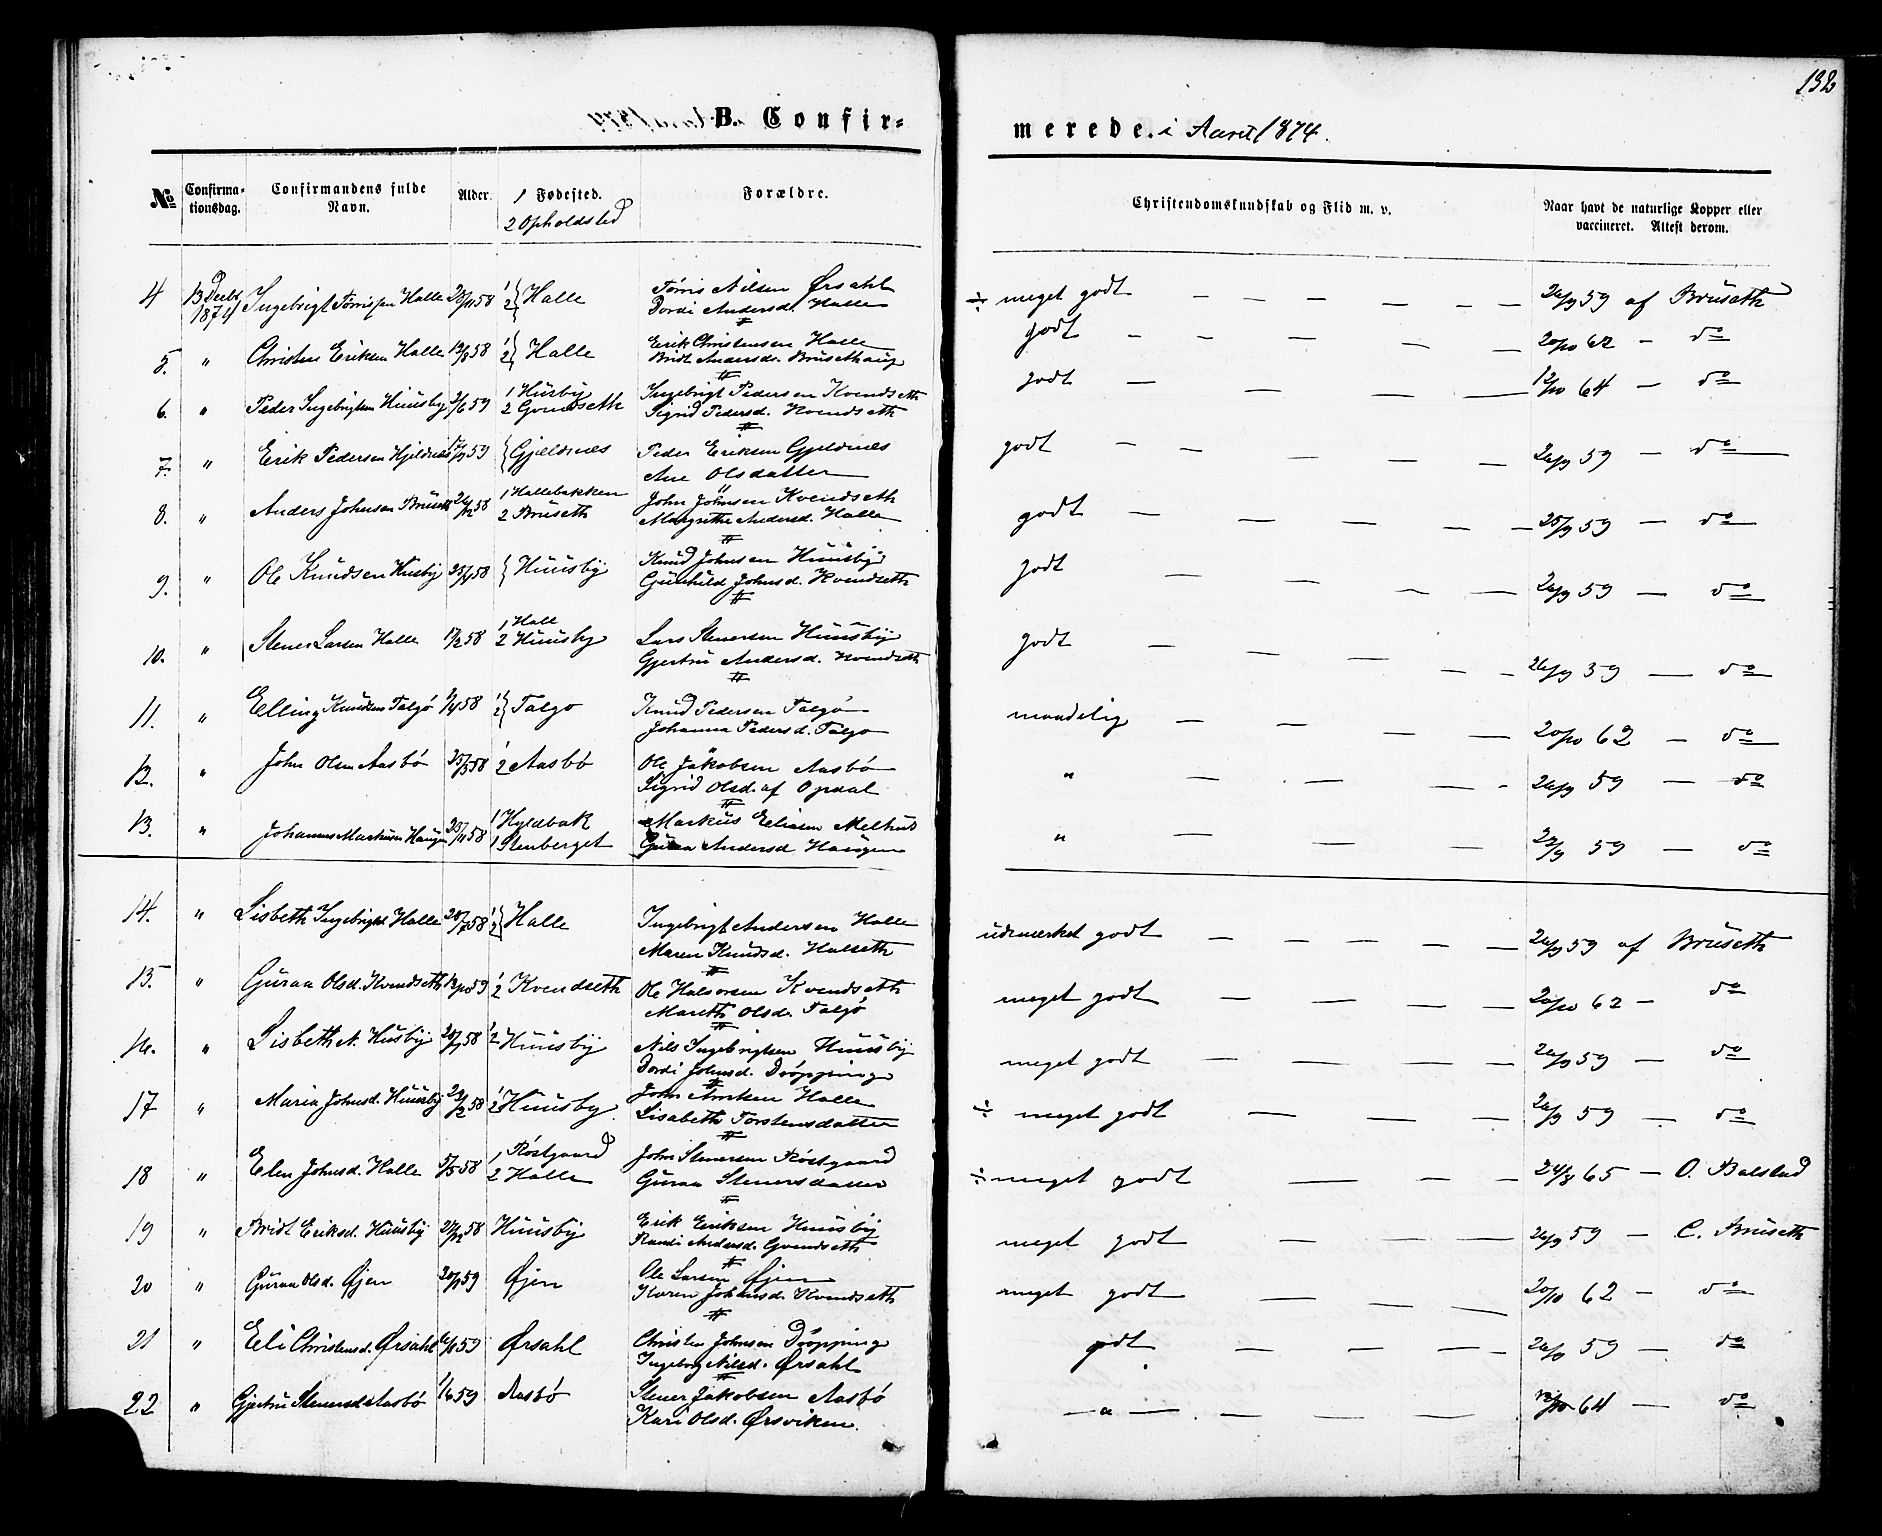 132
B. Confir-
merede. i Aaret 1874.
No
Confirma-
tionsdag.
Confirmandens fulde
Navn.
Alder.
1 Fødested.
2 Opholdsted
Forældre.
Christendomskundskab og Flid m. v.
Naar havt de naturlige Kopper eller
vaccineret. Attest derom.
4 13 Decbr 1874 Ingebrigt Tørrisen Halle 28/11 58 1 2 } Halle Tørris Nilsen Ørsahl
Dordi Andersd. Halle
÷ meget godt — — — — — 26/9 59 af Bruseth
5. " Christen Eriksen Halle 12/8 58 1 2 } Halle Erik Christensen Halle
Bridt Andersdr. Brusethaug
godt — — — — — 20/10 62 — do
6. " Peder Ingebrigtsen Huusby 2/6 59 1 Husby Ingebrigt Pedersen Kvendseth
2 Gvendseth Sigrid Pedersd. Kvendseth
godt — — — — 12/10 64 — do
7. " Erik Pedersen Gjeldnæs 17/3 59 { Gjeldnæs Peder Eriksen Gjeldnæs
Ane Olsdatter
godt — — — — — 26/9 59 — do
8. " Anders Johnsen Bruseth 26/12 58 1 Hallebakken John Johnsen Kvendseth
2 Bruseth Margrethe Andersd. Halle
godt — — — — — 25/9 59 — do
9. " Ole Knudsen Husby 25/4 58 { Huusby Knud Johnsen Huusby
Gunhild Johnsd. Kvendseth
godt — — — — 26/9 59 — do
10. " Stener Larsen Halle 17/2 58 1 Hall Lars Stenersen Huusby
2 Huusby Gjertru Andersd. Kvendseth
godt — — — — — 26/9 59 — do
11. " Elling Knudsen Talgø 1/4 58 1 2 } Talgo Knud Pedersen Talgø
Johanna Pedersd. Talgo
maadelig — — — — 20/10 62 — do
12. " John Olsen Aasbø 25/3 58 1 2 Aasbø Ole Jakobsen Aasbø
Sigrid Olsd. af Opdal
" — — — — 26/9 59 — do
13. " Johannes Markusen Haugen 25/11 58 1 Hyldbak Markus Eliasen Melhus
1 Stenberget Guraa Andersd Haugen
" — — — — 22/9 59 — do
14. " Lisbeth Ingebrigtd Halle 28/7 58 1 2 } Halle Ingebrigt Andersen Halle
Maren Knudsd. Halseth
udmærket godt — — — — — 26/9 59 af Bruseth
15. " Guraa Olsd. Kvendseth 12/10 59 1 2 Kvendseth Ole Halvorsen Kvendseth
Mareth Olsdr. Talgø
meget godt — — — — 20/10 62 — do
16. " Lisbeth N. Husby 20/7 58 1 2 Huusby Nils Ingebrigtsen Huusby
Dordi Johnsd. Drøpping
meget godt — — — — 26/9 59 — do
17 " Maria Johnsd. Huusby 22/2 58 1 2 Huusby John Amken Halle
Lisabeth Torstensdatter
÷ meget godt — — — 26/9 59 — do
18 " Elen Johnsd. Halle 5/5 58 1 Røstgaard John Stenersen Røstgaard
2 Halle Guraa Stenersdatter
÷ meget godt — — — 24/8 65 — O. Balstad
19 " Bridt Eriksd. Huusby 21/12 58 Huusby Erik Eriksen Huusby
Randi Andersd. Gvendseth
meget godt — — — — 26/9 59 — C. Bruseth
20 " Guraa Olsd. Øjen 20/1 59 Øjen Ole Larsen Øjen
Karen Johansd. Kvendseth
meget godt — — — — 20/10 62 — do
21 " Eli Christensd. Ørsahl 6/1 59 Ørsahl Christen Johnsen Drøpping
Ingeborg Nilsd. Ørsahl
godt — — — — 26/9 59 — do
22 " Gjertru Stenersd Aasbø 1/6 59 Aasbø Stener Jakobsen Aasbø
Kari Olsd. Ørsviken.
— " — — — — — 12/10 64 — do